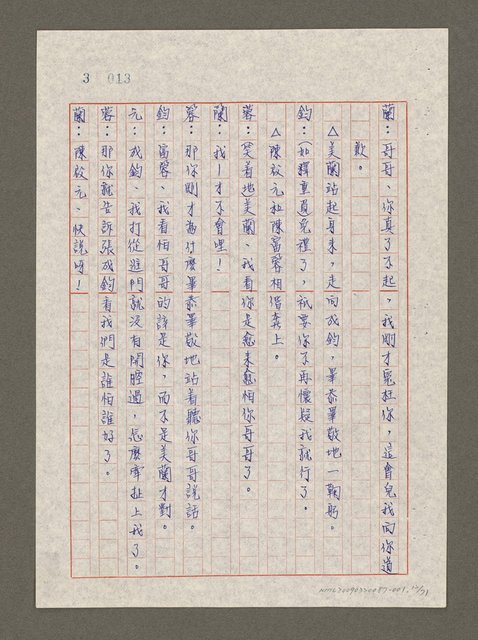 3 013
蘭：哥哥、你真了不起，我剛才冤枉你，這會兒我向你道
歉。
△美蘭站起身來，走向成鈞，畢恭畢敬地一鞠躬。
鈞：(如釋重負)免禮了，祇要你不再懷疑我就行了。
△陳致元和陳富蓉相偕奔上。
蓉：(笑着地)美蘭、我看你是愈來愈怕你哥哥了。
蘭：我！才不會哩！
蓉：那你剛才為什麼畢恭畢敬地站着聽你哥哥說話。
鈞：富蓉、我看怕哥哥的該是你，而不是美蘭才對。
元：成鈞、我打從進門就沒有開腔過，怎麼牽扯上我了。
蓉：那你就告訴張成鈞看我們是誰怕誰好了。
蘭：陳致元、快說呀！